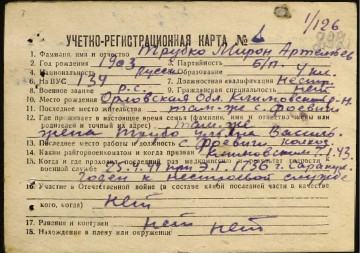 1/126
УЧЕТНО-РЕГИСТРАЦИОННАЯ КАРТА № 1
1. Фамилия, имя и отчество Трубко Мирон
2. Год рождения 1903 3. Партийность б/п.
4. Национальность русск. образование 4 кл.
6. № ВУС 134 7. Должностная квалификация нестр.
8. Военное звание р.с. 9. Гражданская специальность
10. Место рождения Орловская обл. Климовский р-н
11. Последнее место жительства там-же с.
12. Где проживает в настоящее время семья (фамилия, имя и отчество жены или
родителей и точный их адрес) там-же
жена Трубко
13. Последнее место работы и должность с. колхоз
14. Каким райгорвоенкоматом и когда призван Климовским 43.
15. Когда и где проходил последний раз медкомиссию и результат годности
военной службе 25.1.44 при Э.Г. 1136
годен к нестроевой службе
16. Участие в Отечественной войне (в составе какой последней части в качестве
кого, когда) нет
17. Ранения и контузии нет
18. Нахождение в плену или окружении нет